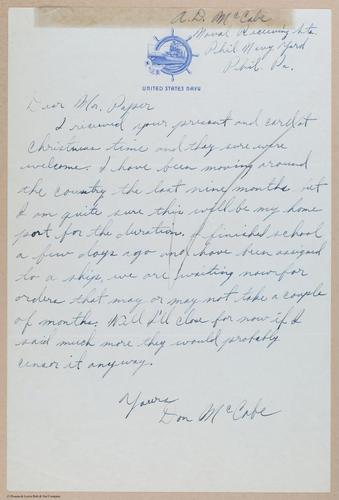 A. D. McCabe
Naval Receiving Sta
Phil Navy Yard
Phil. Pa.
UNITED STATES NAVY
Dear Mr. Paper
I received your present and card at
Christmas time and they sure were
welcome. I have been moving around
the country the last nine months but
I am quite sure this will be my home
port for the duration. I finished school
a few days ago and have been assigned
to a ship, we are waiting now for
orders that may or may not take a couple
of months. Well I'll close for now if I
said much more they would probably
censor it anyway.
Yours
Don McCabe